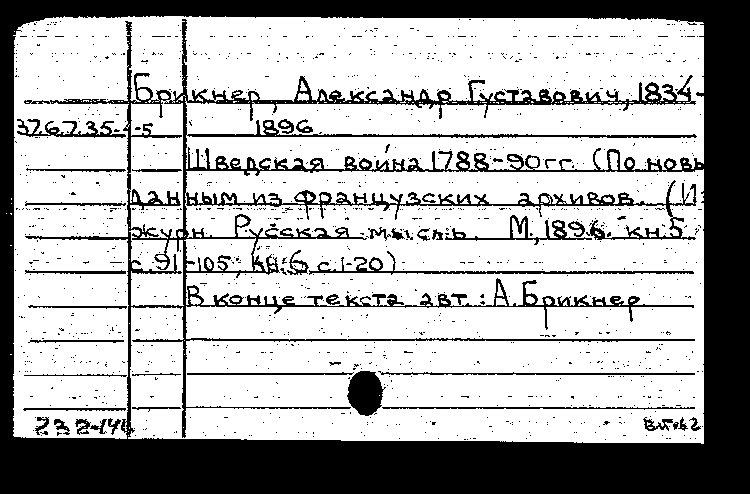 Брикнер, Александр Густавович, 1834-
37.6.7.35-4-5 1896.
Шведская война 1788-90гг. (По новы
данным из французских архивов. (Из
журн. Русская мысль. М., 1896. кн.5
с.91-105; кн.6 с.1-20)
В конце текста авт.: А.Брикнер
232-146